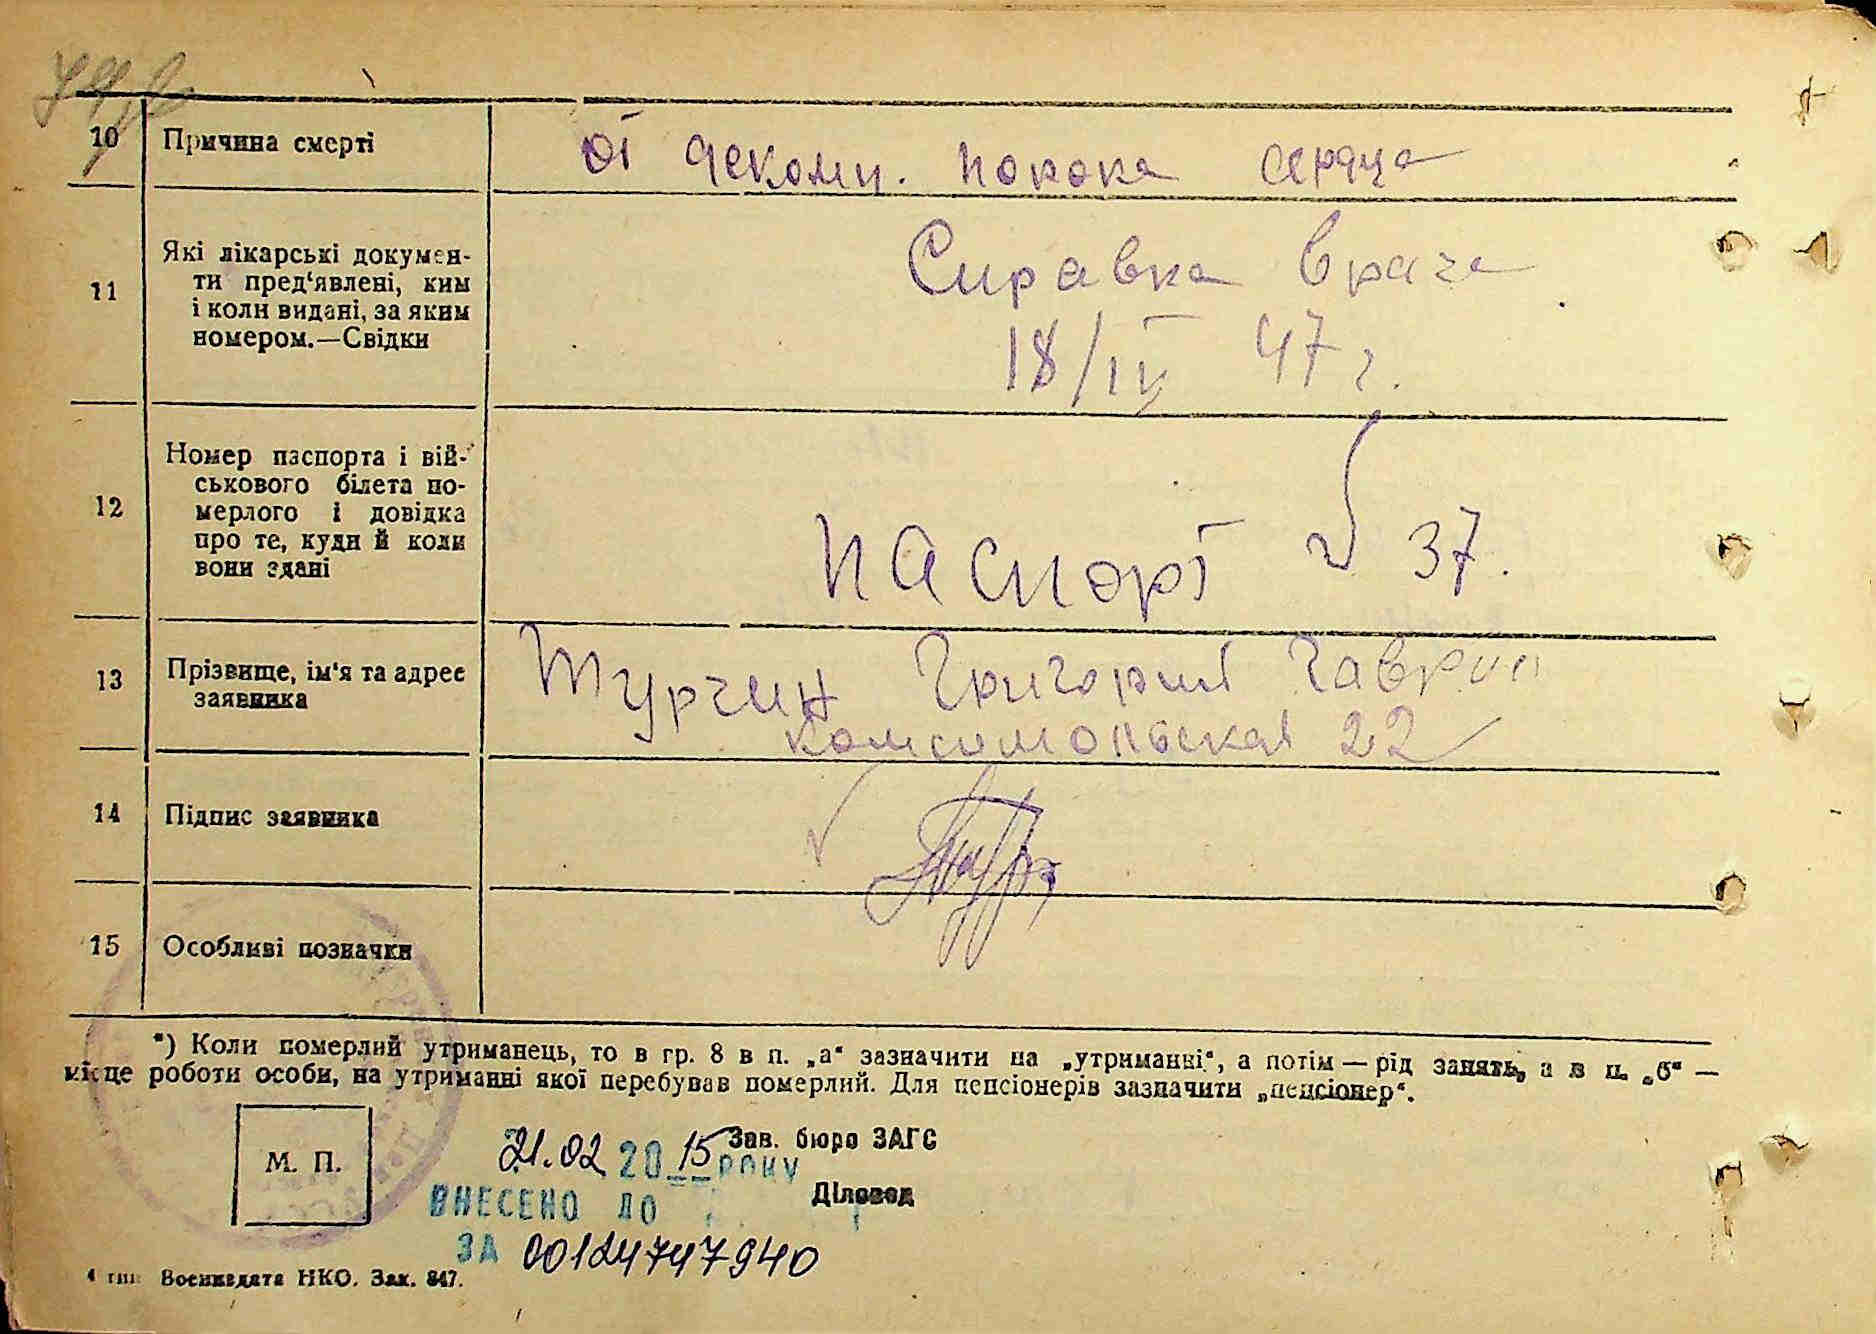 10 Причина смерті от деком. порока сердца
11 Які лікарські докумен-
ти пред‘явлені, ким
і коли видані, за яким
номером.—Свідки
Справка врача
18/IV 47 г.
12 Номер паспорта і вій-
ськового білета по-
мерлого і довідка
про те, куди й коли
вони здані
паспорт № 37.
13 Прізвище, ім‘я та адрес
заявника
Турчин Григорий Гаврил
Комсомольская 22
14 Підпис заявника
15 Особливі позначки
*) Коли померлий утриманець, то в гр. 8 в п. „а“ зазначити на „утриманні“, а потім — рід занять, а в п. „б“ —
місце роботи особи, на утриманні якої перебував померлий. Для пенсіонерів зазначити „пенсіонер“.
М. П.
Зав. бюро ЗАГС
21.02 2015 року
Діловод
ВНЕСЕНО ДО
ЗА 00124747940
4 тип Воениздата НКО. Зак. 847.